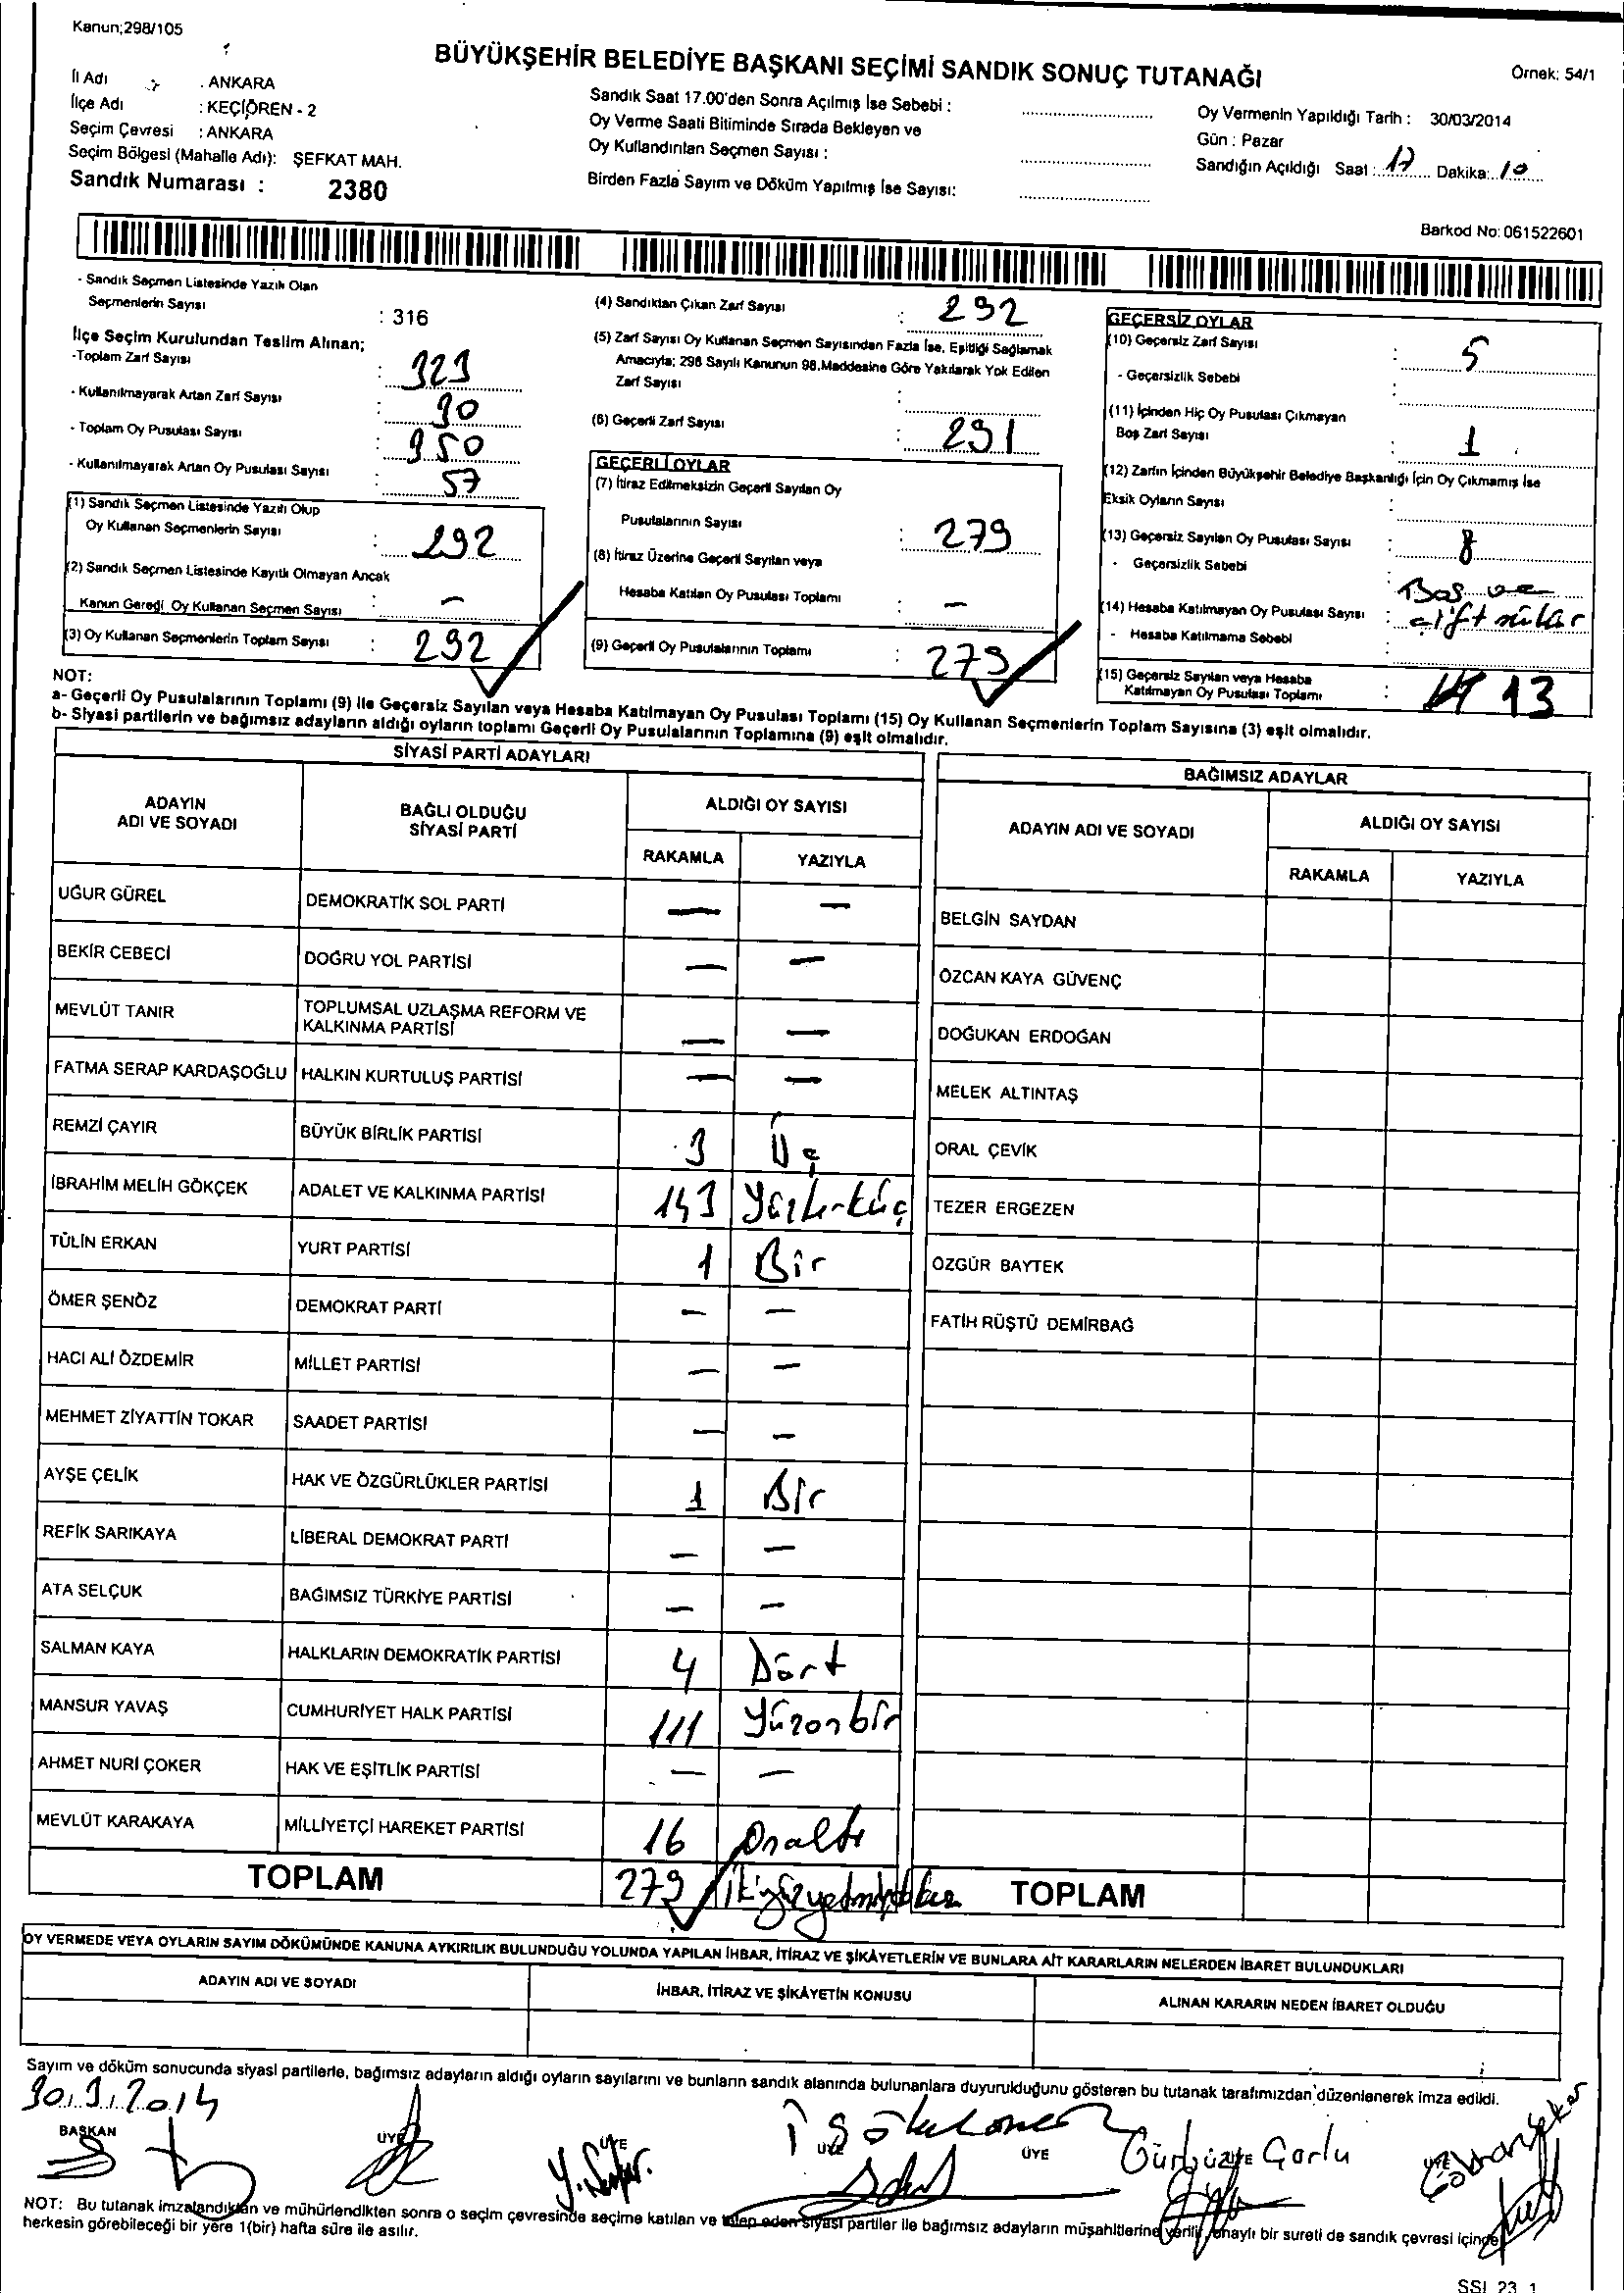 Kanun;298/105
BÜYÜKŞEHİR BELEDİYE BAŞKANI SEÇİMİ SANDIK SONUÇ TUTANAĞI
Örnek: 54/1
İl Adı : ANKARA
İlçe Adı : KEÇİÖREN - 2
Seçim Çevresi : ANKARA
Seçim Bölgesi (Mahalle Adı): ŞEFKAT MAH.
Sandık Numarası : 2380
Sandık Saat 17.00'den Sonra Açılmış İse Sebebi :
Oy Verme Saati Bitiminde Sırada Bekleyen ve
Oy Kullandırılan Seçmen Sayısı :
Birden Fazla Sayım ve Döküm Yapılmış İse Sayısı:
Oy Vermenin Yapıldığı Tarih : 30/03/2014
Gün : Pazar
Sandığın Açıldığı Saat : 17 Dakika: 10
Barkod No: 061522601
- Sandık Seçmen Listesinde Yazılı Olan
Seçmenlerin Sayısı : 316
İlçe Seçim Kurulundan Teslim Alınan;
-Toplam Zarf Sayısı : 323
- Kullanılmayarak Artan Zarf Sayısı : 30
- Toplam Oy Pusulası Sayısı : 350
- Kullanılmayarak Artan Oy Pusulası Sayısı : 57
(1) Sandık Seçmen Listesinde Yazılı Olup
Oy Kullanan Seçmenlerin Sayısı : 292
(2) Sandık Seçmen Listesinde Kayıtlı Olmayan Ancak
Kanun Gereği Oy Kullanan Seçmen Sayısı : -
(3) Oy Kullanan Seçmenlerin Toplam Sayısı : 292
(4) Sandıktan Çıkan Zarf Sayısı : 292
(5) Zarf Sayısı Oy Kullanan Seçmen Sayısından Fazla İse, Eşitliği Sağlamak
Amacıyla; 298 Sayılı Kanunun 98.Maddesine Göre Yakılarak Yok Edilen
Zarf Sayısı :
(6) Geçerli Zarf Sayısı : 291
GEÇERLİ OYLAR
(7) İtiraz Edilmeksizin Geçerli Sayılan Oy
Pusulalarının Sayısı : 279
(8) İtiraz Üzerine Geçerli Sayılan veya
Hesaba Katılan Oy Pusulası Toplamı : -
(9) Geçerli Oy Pusulalarının Toplamı : 279
GEÇERSİZ OYLAR
(10) Geçersiz Zarf Sayısı : 5
- Geçersizlik Sebebi :
(11) İçinden Hiç Oy Pusulası Çıkmayan
Boş Zarf Sayısı : 1
(12) Zarfın İçinden Büyükşehir Belediye Başkanlığı İçin Oy Çıkmamış İse
Eksik Oyların Sayısı :
(13) Geçersiz Sayılan Oy Pusulası Sayısı : 8
- Geçersizlik Sebebi : Boş ve
(14) Hesaba Katılmayan Oy Pusulası Sayısı : çift
- Hesaba Katılmama Sebebi :
(15) Geçersiz Sayılan veya Hesaba
Katılmayan Oy Pusulası Toplamı : 13
NOT:
a- Geçerli Oy Pusulalarının Toplamı (9) ile Geçersiz Sayılan veya Hesaba Katılmayan Oy Pusulası Toplamı (15) Oy Kullanan Seçmenlerin Toplam Sayısına (3) eşit olmalıdır.
b- Siyasi partilerin ve bağımsız adayların aldığı oyların toplamı Geçerli Oy Pusulalarının Toplamına (9) eşit olmalıdır.
SİYASİ PARTİ ADAYLARI
ADAYIN ADI VE SOYADI BAĞLI OLDUĞU SİYASİ PARTİ ALDIĞI OY SAYISI
RAKAMLA YAZIYLA
UĞUR GÜREL DEMOKRATİK SOL PARTİ - -
BEKİR CEBECİ DOĞRU YOL PARTİSİ - -
MEVLÜT TANIR TOPLUMSAL UZLAŞMA REFORM VE KALKINMA PARTİSİ - -
FATMA SERAP KARDAŞOĞLU HALKIN KURTULUŞ PARTİSİ - -
REMZİ ÇAYIR BÜYÜK BİRLİK PARTİSİ 3 Üç
İBRAHİM MELİH GÖKÇEK ADALET VE KALKINMA PARTİSİ 143 Yüzkırküç
TÜLİN ERKAN YURT PARTİSİ 1 Bir
ÖMER ŞENÖZ DEMOKRAT PARTİ - -
HACI ALİ ÖZDEMİR MİLLET PARTİSİ - -
MEHMET ZİYATTİN TOKAR SAADET PARTİSİ - -
AYŞE ÇELİK HAK VE ÖZGÜRLÜKLER PARTİSİ 1 Bir
REFİK SARIKAYA LİBERAL DEMOKRAT PARTİ - -
ATA SELÇUK BAĞIMSIZ TÜRKİYE PARTİSİ - -
SALMAN KAYA HALKLARIN DEMOKRATİK PARTİSİ 4 Dört
MANSUR YAVAŞ CUMHURİYET HALK PARTİSİ 111 Yüzonbir
AHMET NURİ ÇOKER HAK VE EŞİTLİK PARTİSİ - -
MEVLÜT KARAKAYA MİLLİYETÇİ HAREKET PARTİSİ 16 Onaltı
TOPLAM 279 İkiyüzyetmişdokuz
BAĞIMSIZ ADAYLAR
ADAYIN ADI VE SOYADI ALDIĞI OY SAYISI
RAKAMLA YAZIYLA
BELGİN SAYDAN
ÖZCAN KAYA GÜVENÇ
DOĞUKAN ERDOĞAN
MELEK ALTINTAŞ
ORAL ÇEVİK
TEZER ERGEZEN
ÖZGÜR BAYTEK
FATİH RÜŞTÜ DEMİRBAĞ
TOPLAM
OY VERMEDE VEYA OYLARIN SAYIM DÖKÜMÜNDE KANUNA AYKIRILIK BULUNDUĞU YOLUNDA YAPILAN İHBAR, İTİRAZ VE ŞİKÂYETLERİN VE BUNLARA AİT KARARLARIN NELERDEN İBARET BULUNDUKLARI
ADAYIN ADI VE SOYADI İHBAR, İTİRAZ VE ŞİKÂYETİN KONUSU ALINAN KARARIN NEDEN İBARET OLDUĞU
Sayım ve döküm sonucunda siyasi partilerle, bağımsız adayların aldığı oyların sayılarını ve bunların sandık alanında bulunanlara duyurulduğunu gösteren bu tutanak tarafımızdan düzenlenerek imza edildi.
30.3.2014
BAŞKAN ÜYE ÜYE ÜYE ÜYE ÜYE ÜYE
NOT: Bu tutanak imzalandıktan ve mühürlendikten sonra o seçim çevresinde seçime katılan ve talep eden siyasi partiler ile bağımsız adayların müşahitlerine verilir, onaylı bir sureti de sandık çevresi içinde
herkesin görebileceği bir yere 1(bir) hafta süre ile asılır.
SSI 23 1